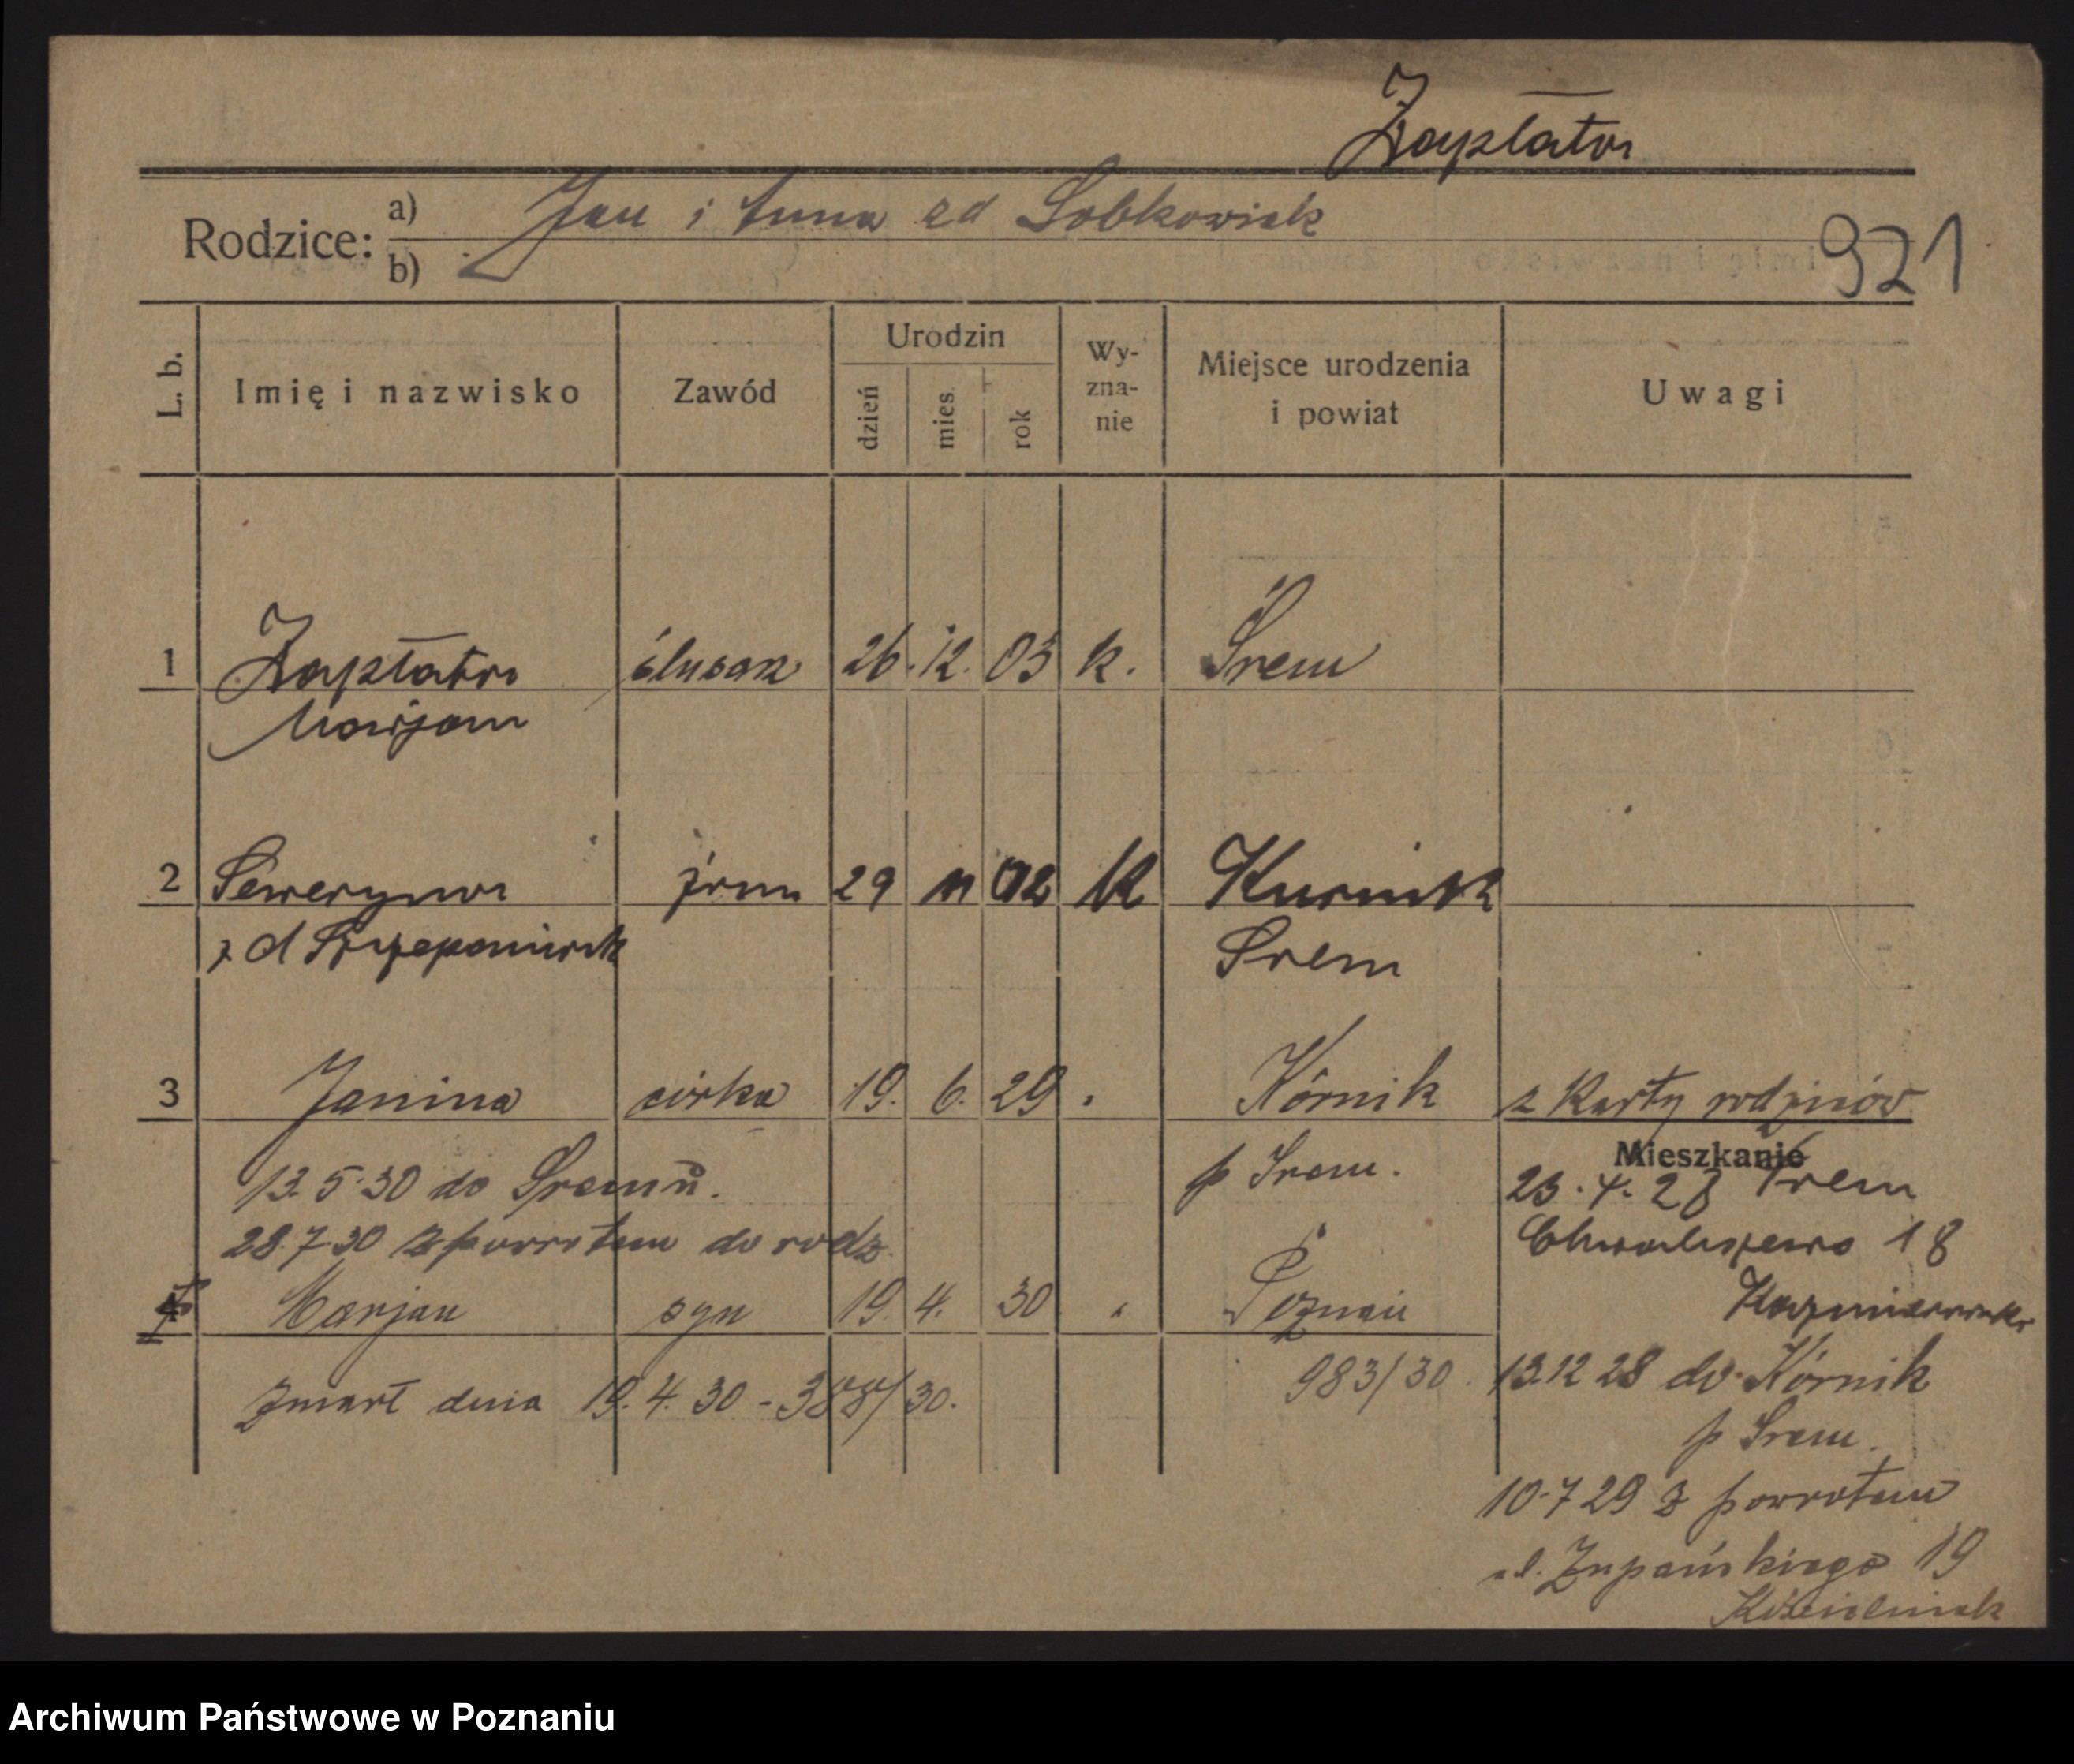 Zapłata
Rodzice: a) Jan i Anna zd Sobkowiak
b)
921
L. b.
Imię i nazwisko
Zawód
Urodzin
dzień
mies.
rok
Wy-
zna-
nie
Miejsce urodzenia
i powiat
Uwagi
1 Zapłata ślusarz 26. 12. 03 k. Śrem
Marjan
2 Seweryna żona 29 11 02 k Kurnik
z d Szczepaniak Srem
3 Janina córka 19. 6. 29 " Kórnik z Karty rodziców
Mieszkanie
13.5.30 do Sremu. p Srem. 23.4.28 Srem
28.7.30 z powrotem do rodz. Chwaliszewo 18
4 Marjan syn 19 4. 30 " Poznań
Zmarł dnia 19.4.30 - 388/30. 983/30. 13.12 28 do Kórnik
p Srem.
10.7 29 z powrotem
ul. Żupańskiego 19
Kościelniak
Archiwum Państwowe w Poznaniu